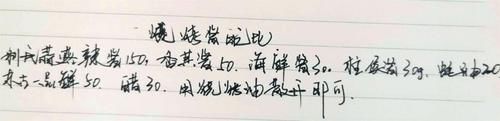 烧烤酱配比
蒜蓉辣酱150，香其酱50，海鲜酱30，柱侯酱30g，蚝油20
东古一品鲜50，醋30，用烧烤油散开即可．